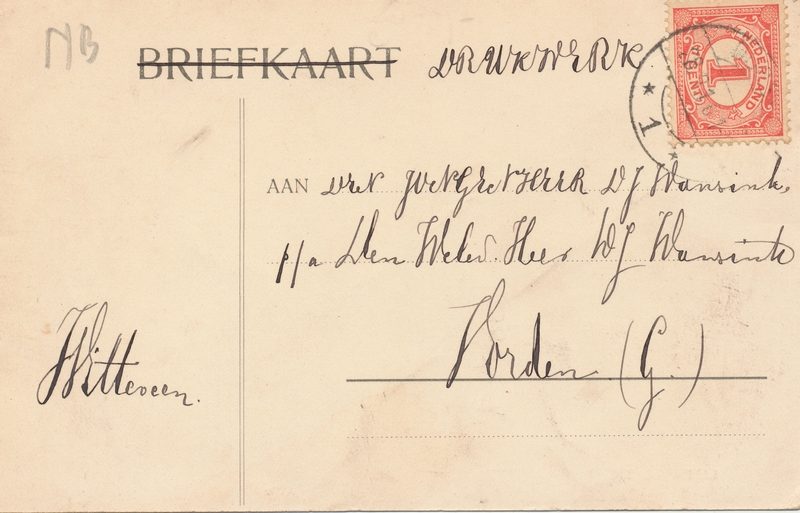 NB
BRIEFKAART DRUKWERK
NEDERLAND
1
CENT
1
AAN DEN JONGENHEER DJ Wansink.
p/a Den Weled. Heer WJ Wansink
Witteveen.
Vorden (G.)